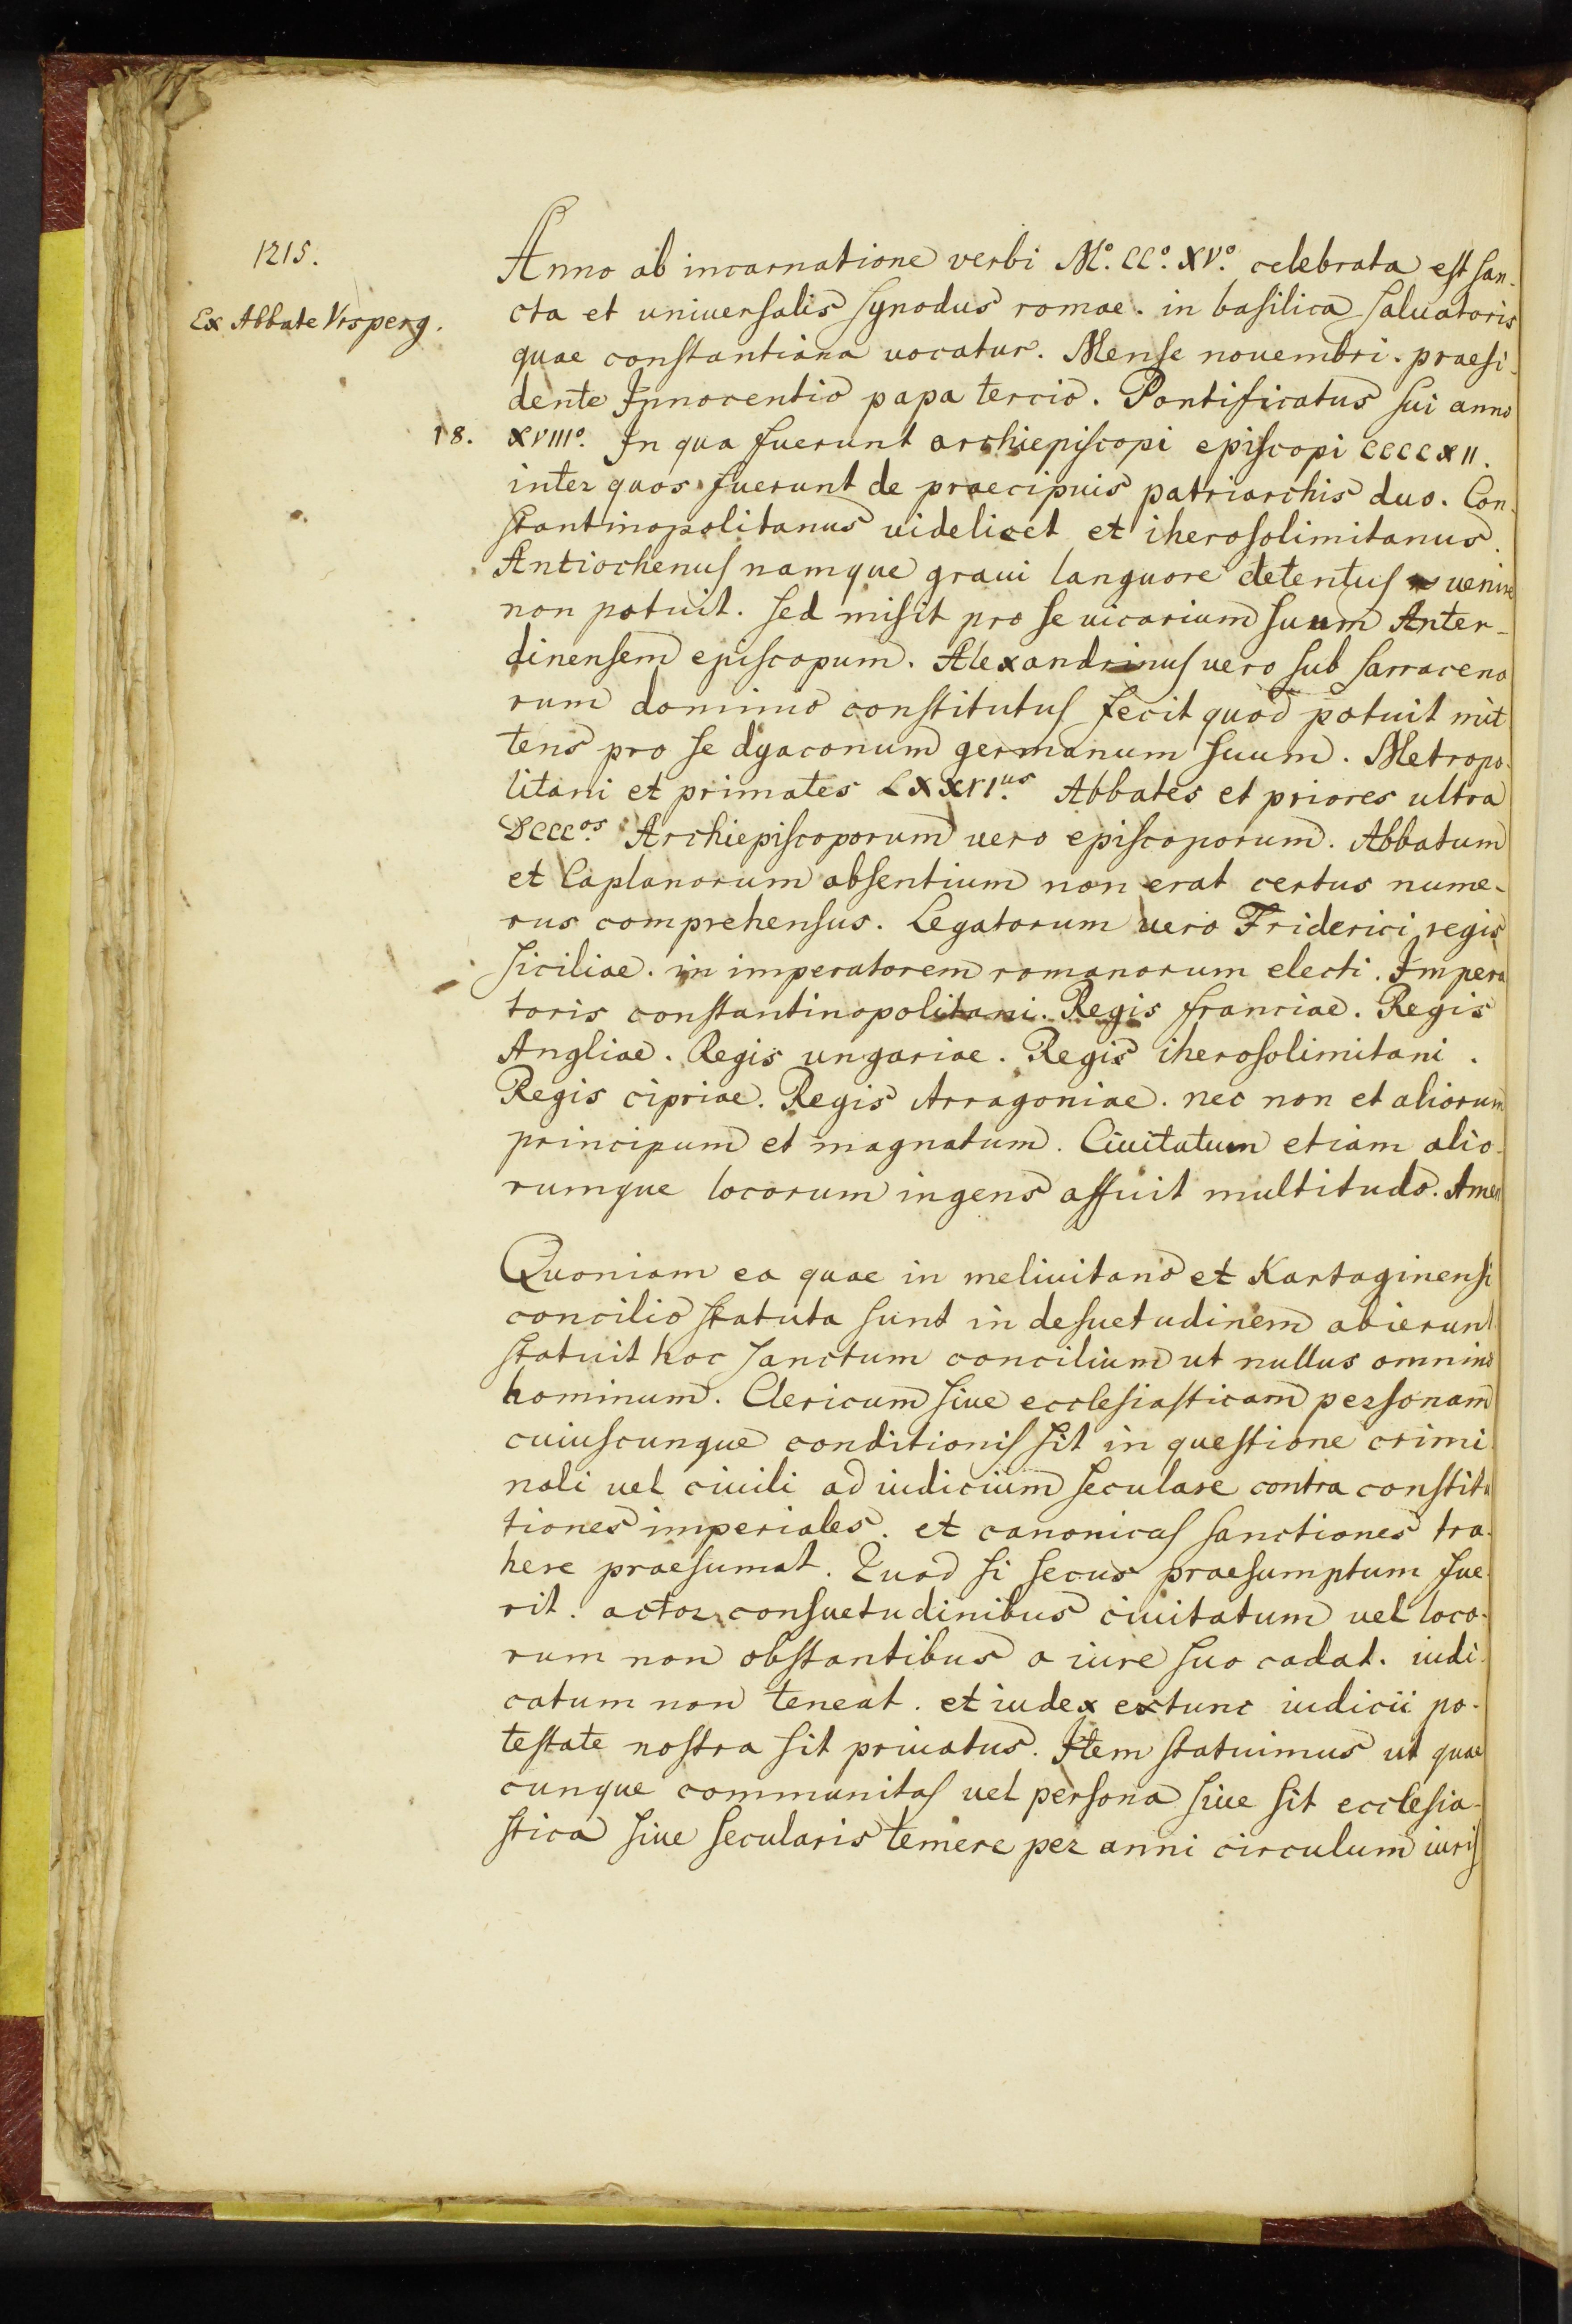 1215.
Ex Abbate Vrsperg.
Anno ab incarnatione verbi M.º CC.º XV.º celebrata est san-
cta et uniuersalis synodus romae. in basilica saluatoris
quae constantiana uocatur. Mense nouembri. praesi-
dente Innocentio papa tercio. Pontificatus sui anno
18.
XVIIIº. In qua fuerunt archiepiscopi episcopi CCCCXII.
inter quos fuerunt de praecipuis patriarchis duo. Con-
stantinopolitanus uidelicet et iherosolimitanus.
Antiochenus namque graui languore detentus uenire
non potuit. sed misit pro se uicarium suum Anter-
dinensem episcopum. Alexandrinus uero sub sarraceno
rum dominio constitutus fecit quod potuit mit
tens pro se dyaconum germanum suum. Metropo-
litani et primates LXXVI.us Abbates et priores ultra
DCCC.os Archiepiscoporum uero episcoporum. Abbatum
et Caplanorum absentium non erat certus nume-
rus comprehensus. Legatorum uero Friderici regis
siciliae. in imperatorem romanorum electi. Impera
toris constantinopolitani. Regis franciae. Regis
Angliae. Regis ungariae. Regis iherosolimitani.
Regis cipriae. Regis Arragoniae. nec non et aliorum
principum et magnatum. Ciuitatum etiam alio-
rumque locorum ingens affuit multitudo. Amen
Quoniam ea quae in meliuitano et Kartaginensi
concilio statuta sunt in desuetudinem abierunt
statuit hoc sanctum concilium ut nullus omnino
hominum. Clericum siue ecclesiasticam personam
cuiuscunque conditionis sit in questione crimi-
nali uel ciuili ad iudicium seculare contra constitu
tiones imperiales. et canonicas sanctiones tra-
here praesumat. Quod si secus praesumptum fue-
rit. actor consuetudinibus ciuitatum uel loco-
rum non obstantibus a iure suo cadat. iudi-
catum non teneat. et iudex extunc iudicii po-
testate nostra sit priuatus. Item statuimus ut quae
cunque communitas uel persona siue sit ecclesia-
stica siue secularis temere per anni circulum iuris